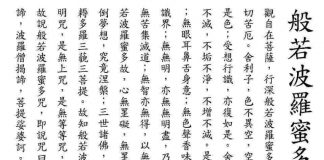 般若波羅蜜多
觀自在菩薩，行深般若波羅蜜多
切苦厄。舍利子，色不異空，空
是色；受想行識，亦復如是。舍
不滅，不垢不淨，不增不減。是
；無眼耳鼻舌身意；無色聲香味
識界；無無明，亦無無明盡，乃
無苦集滅道；無智亦無得，以無
蜜多故，心無罣礙，無罣礙
倒夢想，究竟涅槃；三世諸佛，
耨多羅三藐三菩提。故知般若波
明咒，是無上咒，是無等等咒，
故說般若波羅蜜多咒，即說咒曰
諦，波羅僧揭諦，菩提娑婆訶。